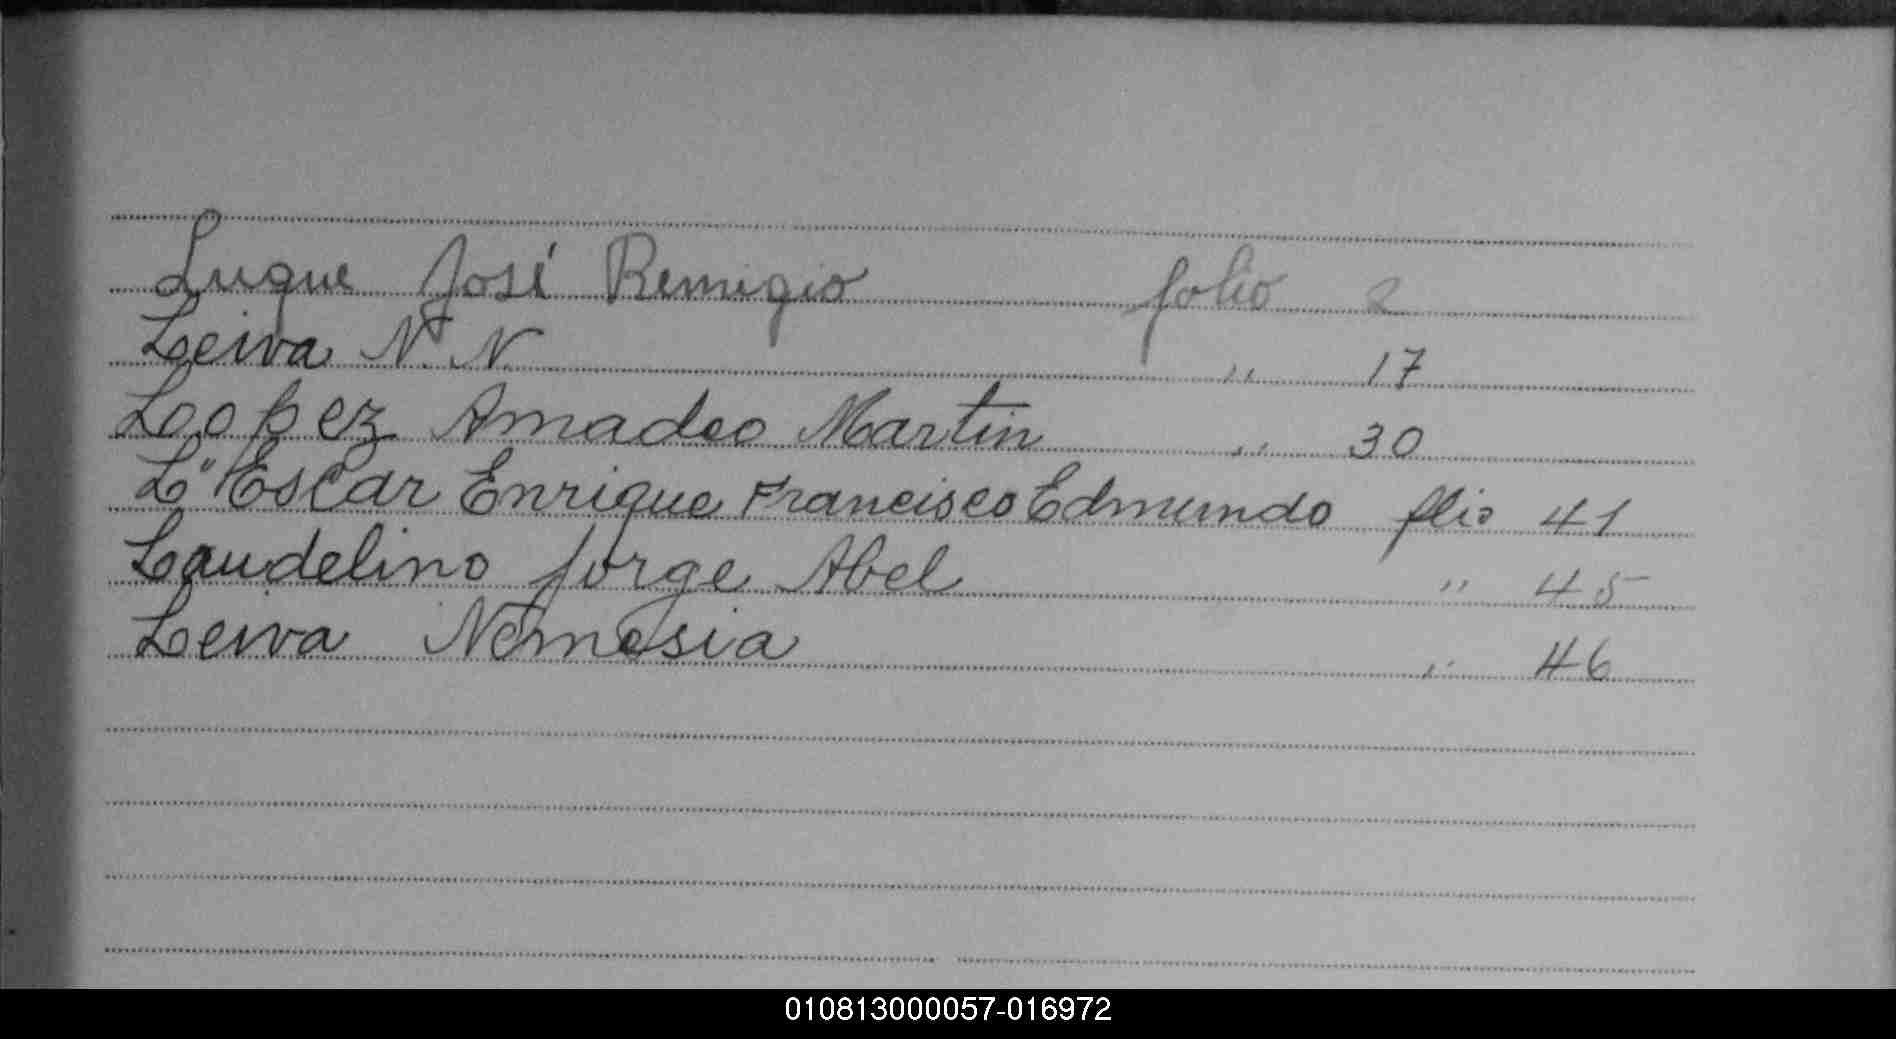 Luque José Remigio folio 2
Leiva N. N. " 17
Lopez Amadeo Martin " 30
L"Escar Enrique Francisco Edmundo flio 41
Laudelino Jorge Abel " 45
Leiva Nemesia " 46
010813000057-016972